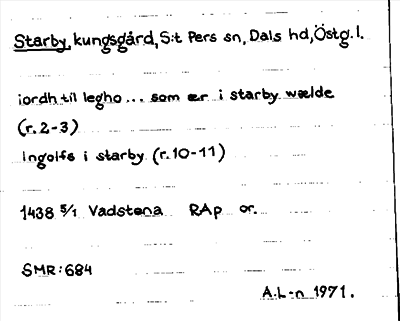 Starby, kungsgård, S:t Pers sn, Dals hd, Östg. l.
iordh til legho... som ær i starby wælde
(r. 2-3)
Ingolfs i starby (r. 10-11)
1438 5/1 Vadstena RAp or.
SMR: 684
A.L-n 1971.